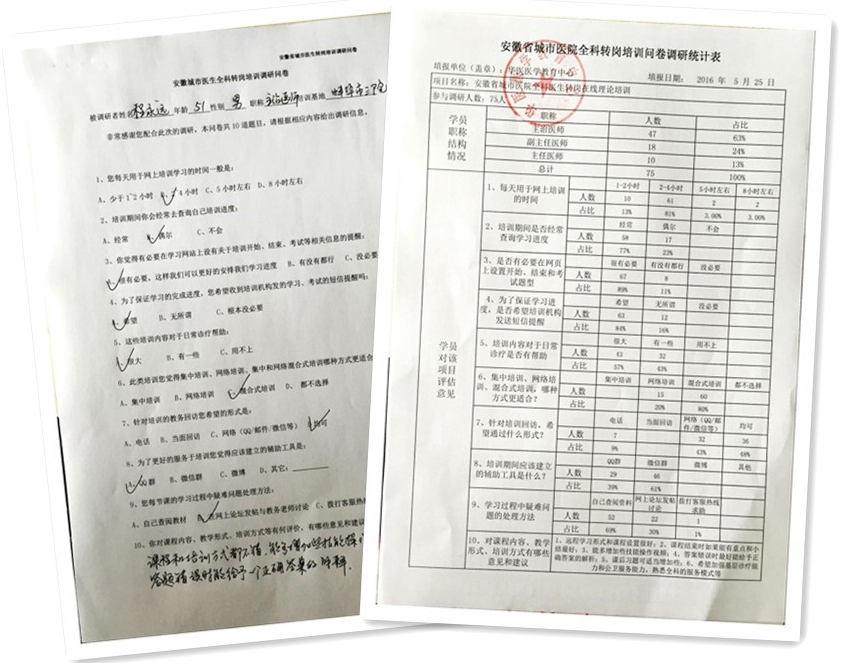 安徽省城市医生转岗培训调研问卷
安徽城市医生全科转岗培训调研问卷
被调研者姓名 年龄 51 性别 男 职称 主治医师 培训基地 蚌埠市三院
非常感谢您配合此次的调研，本问卷共10道题目，请根据相应内容给出调研信息。
1、您每天用于网上培训学习的时间一般是：
A、少于1~2小时 B、2-4小时 C、5小时左右 D、8小时左右
2、培训期间你会经常去查询自己培训进度：
A、经常 B、偶尔 C、不会
3、你觉得有必要在学习网站上设有关于培训开始、结束、考试等相关信息的提醒：
A、很有必要，这样我们可以更好的安排我们学习进度 B、有没有都行 C、没必要
4、为了保证学习的完成进度，您希望收到培训机构发的学习、考试的短信提醒吗：
A、希望 B、无所谓 C、根本没必要
5、这些培训内容对于日常诊疗帮助：
A、很大 B、有一些 C、用不上
6、此类培训您觉得集中培训、网络培训、集中和网络混合式培训哪种方式更适合
A、集中培训 B、网络培训 C、混合式培训 D、都不选择
7、针对培训的教务回访您希望的形式是：
A、电话 B、当面回访 C、网络（QQ/邮件/微信等） D、均可
8、为了更好的服务于培训您觉得应该建立的辅助工具是：
A、QQ群 B、微信群 C、微博 D、其它：
9、您每节课的学习过程中疑难问题处理方法：
A、自己查阅教材 B、在网上论坛发帖与教务老师讨论 C、拨打客服热
10、你对课程内容、教学形式、培训方式等有何评价、有哪些意见和建议
课程和培训方式都不错，能多增加些技能操
答题错误时能给予一个正确答案的解释.
安徽省城市医院全科转岗培训问卷调研统计表
填报单位（盖章）：华医医学教育中心 填报日期： 2016 年 5 月 25 日
项目名称：安徽省城市医院全科医生转岗在线理论培训
参与调研人数：75人
学员职称结构情况 职称 人数 占比
主治医师 47 63%
副主任医师 18 24%
主任医师 10 13%
总计 75 100%
学员对该项目评估意见
1、每天用于网上培训的时间 1-2小时 2-4小时 5小时左右 8小时左右
人数 10 61 2 2
占比 13% 81% 3.00% 3.00%
2、培训期间是否经常查询学习进度 经常 偶尔 不会
人数 58 17
占比 77% 23%
3、是否有必要在网页上设置开始、结束和考试题型 很有必要 有没有都行 没必要
人数 67 8
占比 89% 11%
4、为了保证学习进度，是否希望培训机构发送短信提醒 希望 无所谓 没必要
人数 63 12
占比 84% 16%
5、培训内容对于日常诊疗是否有帮助 很大 有一些 用不上
人数 43 32
占比 57% 43%
6、集中培训、网络培训、混合式培训，哪种方式更适合？ 集中培训 网络培训 混合式培训 都不选择
人数 15 60
占比 20% 80%
7、针对培训回访，希望通过什么形式？ 电话 当面回访 网络（QQ/邮件/微信等） 均可
人数 7 32 36
占比 9% 43% 48%
8、培训期间应该建立的辅助工具是什么？ QQ群 微信群 微博 其他
人数 29 46
占比 39% 61%
9、学习过程中疑难问题的处理方法 自己查阅资料 网上论坛发帖讨论 拨打客服热线求助
人数 52 22 1
占比 69% 30% 1%
10、对课程内容、教学形式、培训方式有哪些意见和建议
1、远程学习形式和课程设置很好；2、课程结束时如果能有重点和小结最好；3、能多增加些技能操作视频；4、答案错误时最好能给予正确答案的解析；5、课后习题可适当增加些；6、希望加强基层诊疗能力和公卫服务能力，熟悉全科的服务模式等